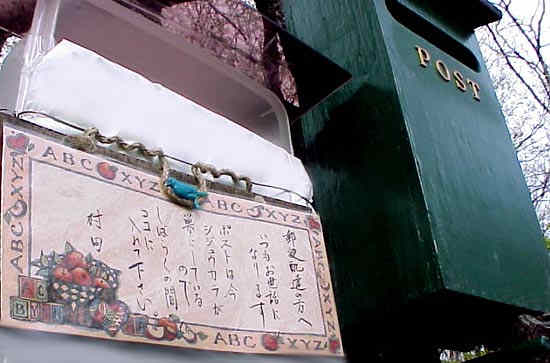 POST
ABC XYZ ABC XYZ
XYZ
ABC
郵便配達の方へ
いつもお世話に
なります
ポストは今
シジュウカラが
巣にしている
ので
しばらくの間
ココに
入れて下さい。
村田
ABC XYZ